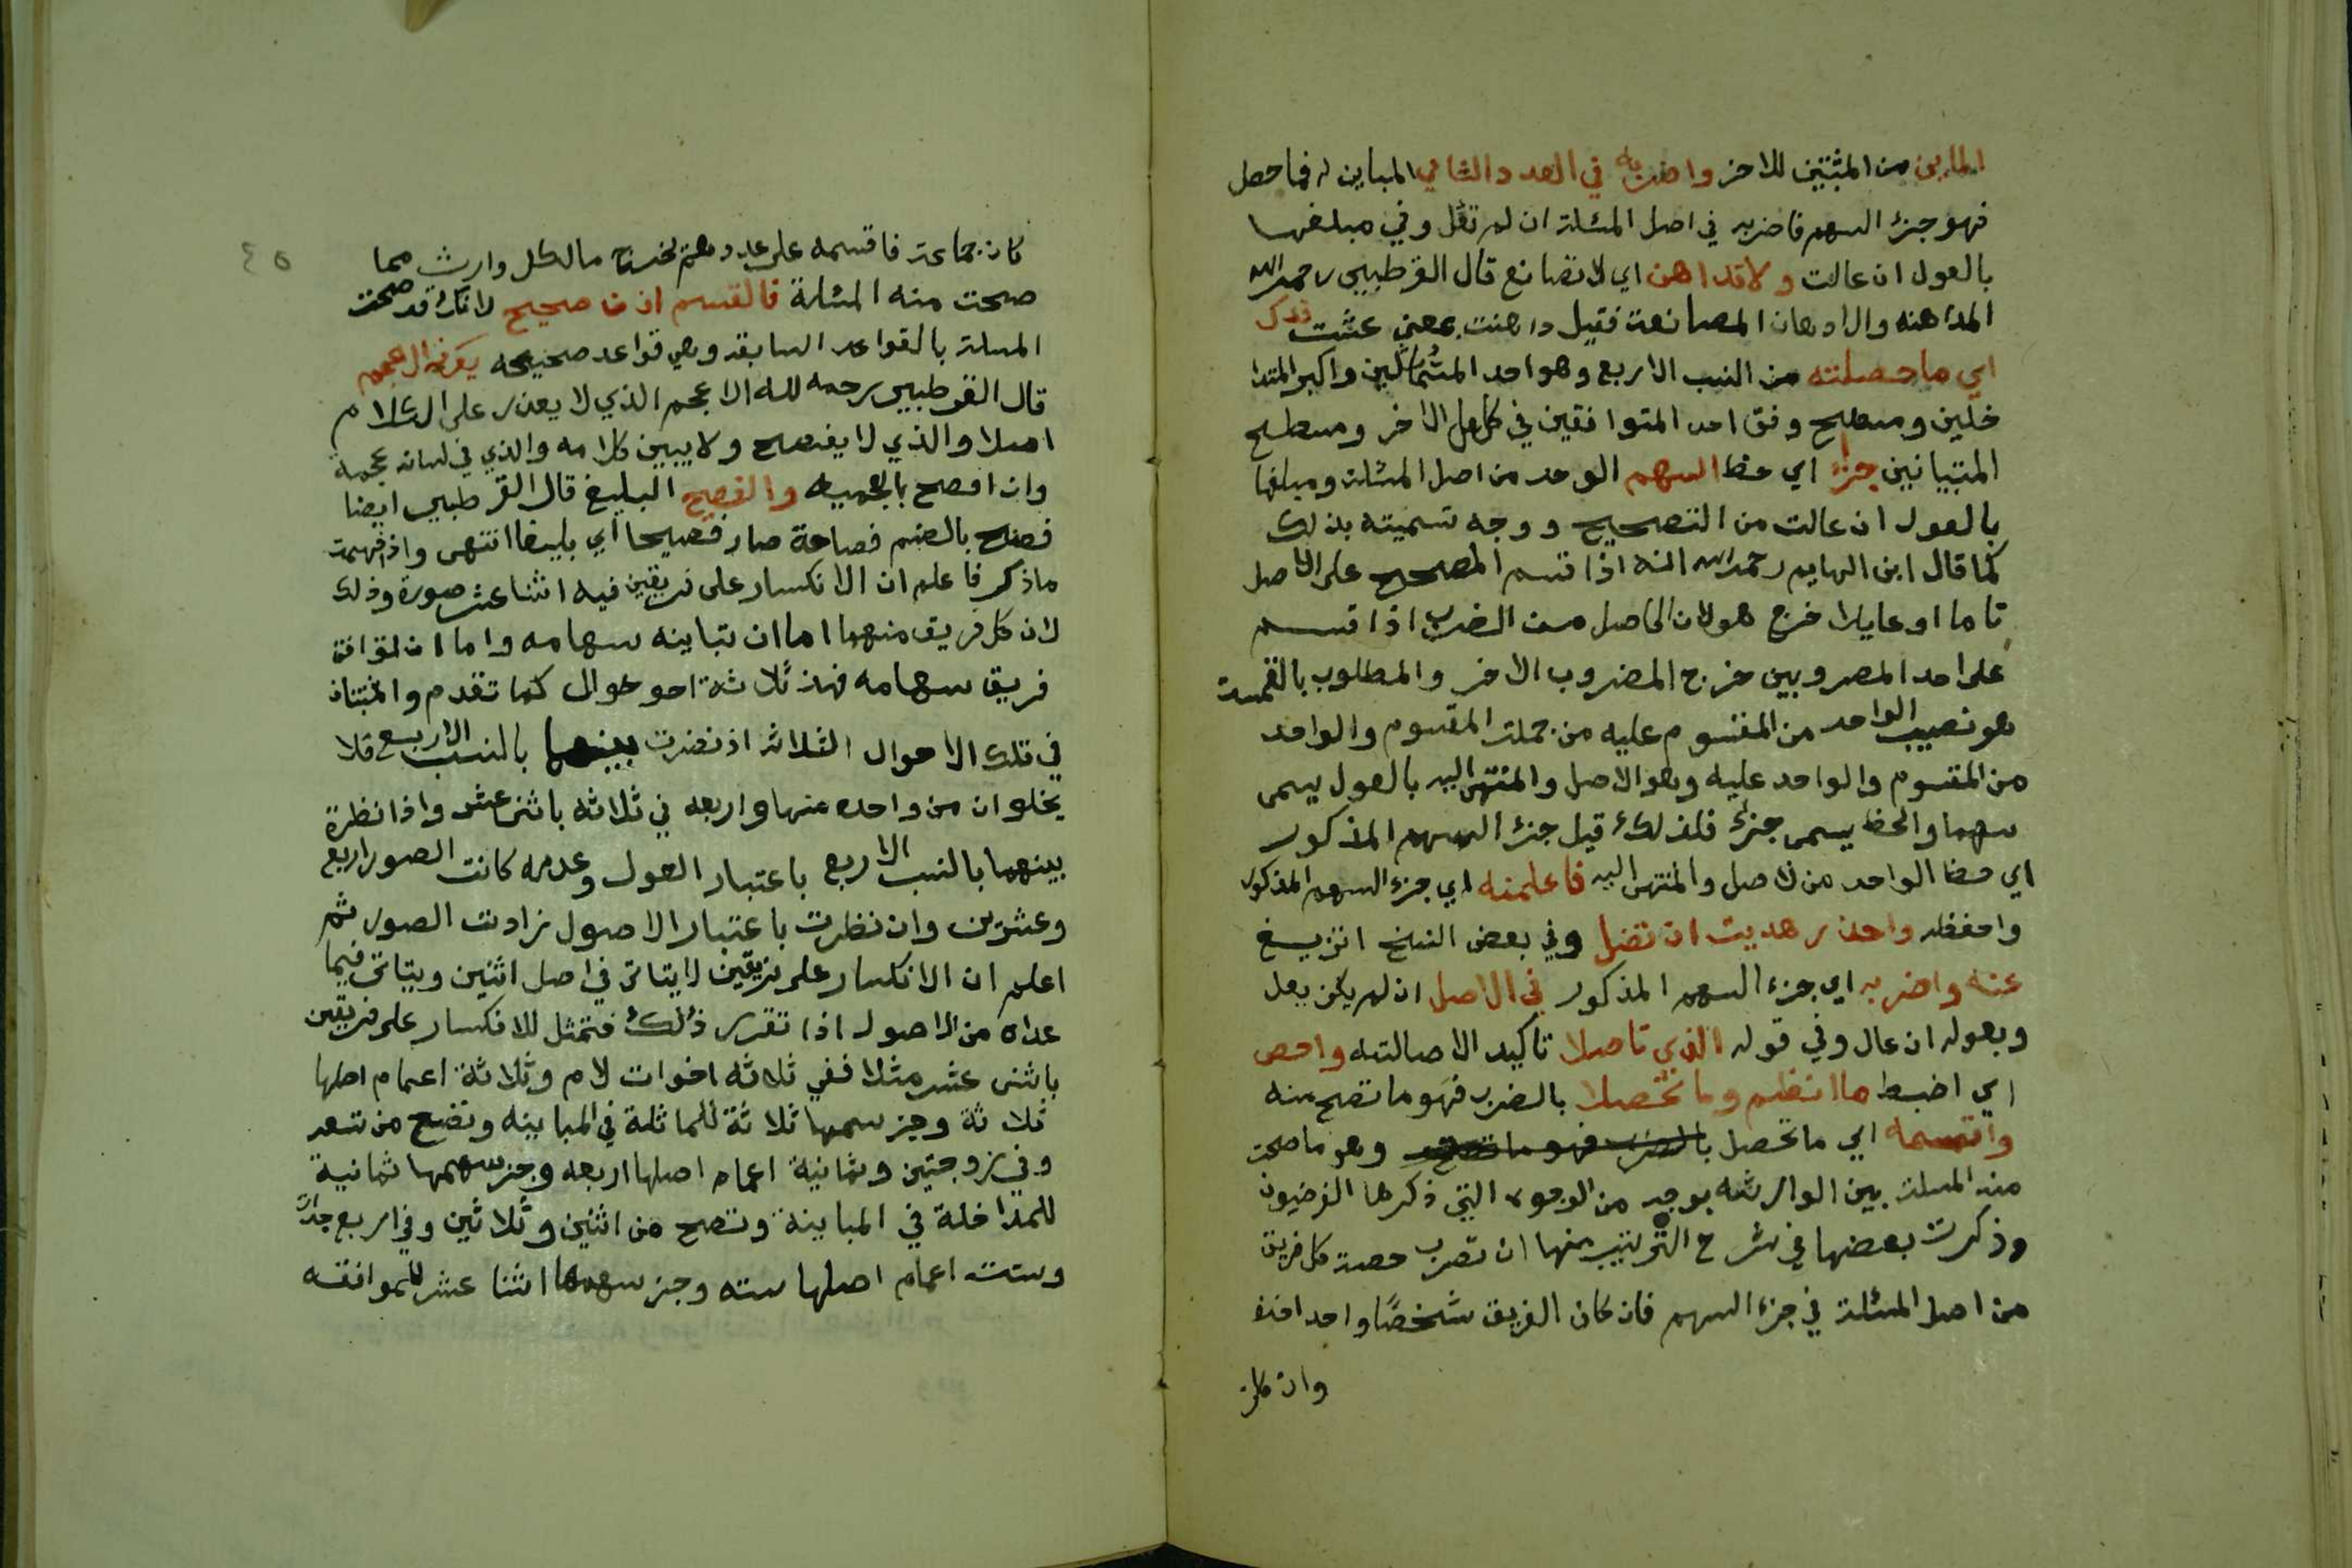 المباين من المثبتين للاخر واضربه في العدد الثاني المباين له فما حصل
فهو جزء السهم فاضربه في اصل المسئلة ان لم تعل وفي مبلغها
بالعول ان عالت ولا تداهن اي لا تصانع قال القرطبي رحمه الله
المداهنه والادهان المصانعة فقيل داهنت بمعنى غششت فذاك
اي ما حصلته من النسب الاربع وهو احد المتماثلين واكبر المتدا
خلين ومسطح وفق احد المتوافقين في كامل الاخر ومسطح
المتباينين جزء اي حظ السهم الوحد من اصل المسئلة ومبلغها
بالعول ان عالت من التصحيح ووجه تسميته بذلك
كما قال ابن الهايم رحمه الله انه اذا قسم المصحح على الاصل
تاما او عايلا خرج هو لان الحاصل من الضرب اذا قسم
على احد المصروبين خرج المضروب الاخر والمطلوب بالقسمة
هو نصيب الواحد من المقسوم عليه من جملة المقسوم والواحد
من المقسوم والواحد عليه وهو الاصل والمنتهى اليه بالعول يسمى
سهما والحظ يسمى جزء فلذلك قيل جزء السهم المذكور
اي حظ الواحد من لاصل والمنتهى اليه فاعلمنه اي جزء السهم المذكور
واحفظه واحذر هديت ان تضل وفي بعض النسخ ان تزيغ
عنه واضربه اي جزء السهم المذكور في الاصل ان لم يكن يعل
وبعوله ان عال وفي قوله الذي تاصلا تاكيد الاصالته واحص
اي اضبط ما انضم وما تحصلا بالضرب فهو ما تصح منه
واقسمه اي ما تحصل بالضرب فهو ما تصح وهو ما صحت
منه المسلة بين الوارثه بوجه من الوجوه التي ذكرها الفرضيون
وذكرت بعضها في شرح الترتيب منها ان تضرب حصة كل فريق
من اصل المسئلة في جزء السهم فان كان الفريق شخصًا واحد اخذه
وان كان
٤٥
كان جماعة فاقسمه على عددهم يخرج ما لكل وارث مما
صحت منه المسئلة فالقسم اذن صحيح لانك قد صححت
المسلة بالقواعد السابقه وهي قواعد صحيحه يعرفه الاعجم
قال القرطبي رحمه الله الاعجم الذي لا يقدر على الكلام
اصلا والذي لا يفصح ولا يبين كلامه والذي في لسانه عجمة
وان افصح بالعجميه والفصيح البليغ قال القرطبي ايضا
فصح بالضم فصاحة صار فصيحا اي بليغا انتهى واذ فهمت
ما ذكر فاعلم ان الانكسار على فريقين فيه اثنا عشر صورة وذلك
لان كل فريق منهما اما ان تباينه سهامه واما ان توافق
فريق سهامه فهذ ثلاثة احوال كما تقدم والمثبتان
في تلك الاحوال الثلاثه اذ نضرت بينهما بالنسب الاربع فلا
يخلوان من واحده منها واربعه في ثلاثه باثنى عشر واذا نظرة
بينهما بالنسب الاربع باعتبار العول وعدمه كانت الصور اربع
وعشرين وان نظرت باعتبار الاصول زادت الصور ثم
اعلم ان الانكسار على فريقين لا يتاتى في اصل اثنين ويتاتى فيما
عداه من الاصول اذا تقرر ذلك فنمثل للانكسار على فريقين
باثنى عشر مثلا ففي ثلاثه اخوات لام وثلاثة اعمام اصلها
ثلاثة وجز سهمها ثلاثة للماثلة في المباينه وتصح من تسعه
وفي زوجتين وثمانية اعمام اصلها اربعه وجز سهمها ثمانية
للمداخلة في المباينة وتصح من اثنين وثلاثين وفي اربع جدات
وستت اعمام اصلها سته وجز سهمها اثنا عشر للموافقه